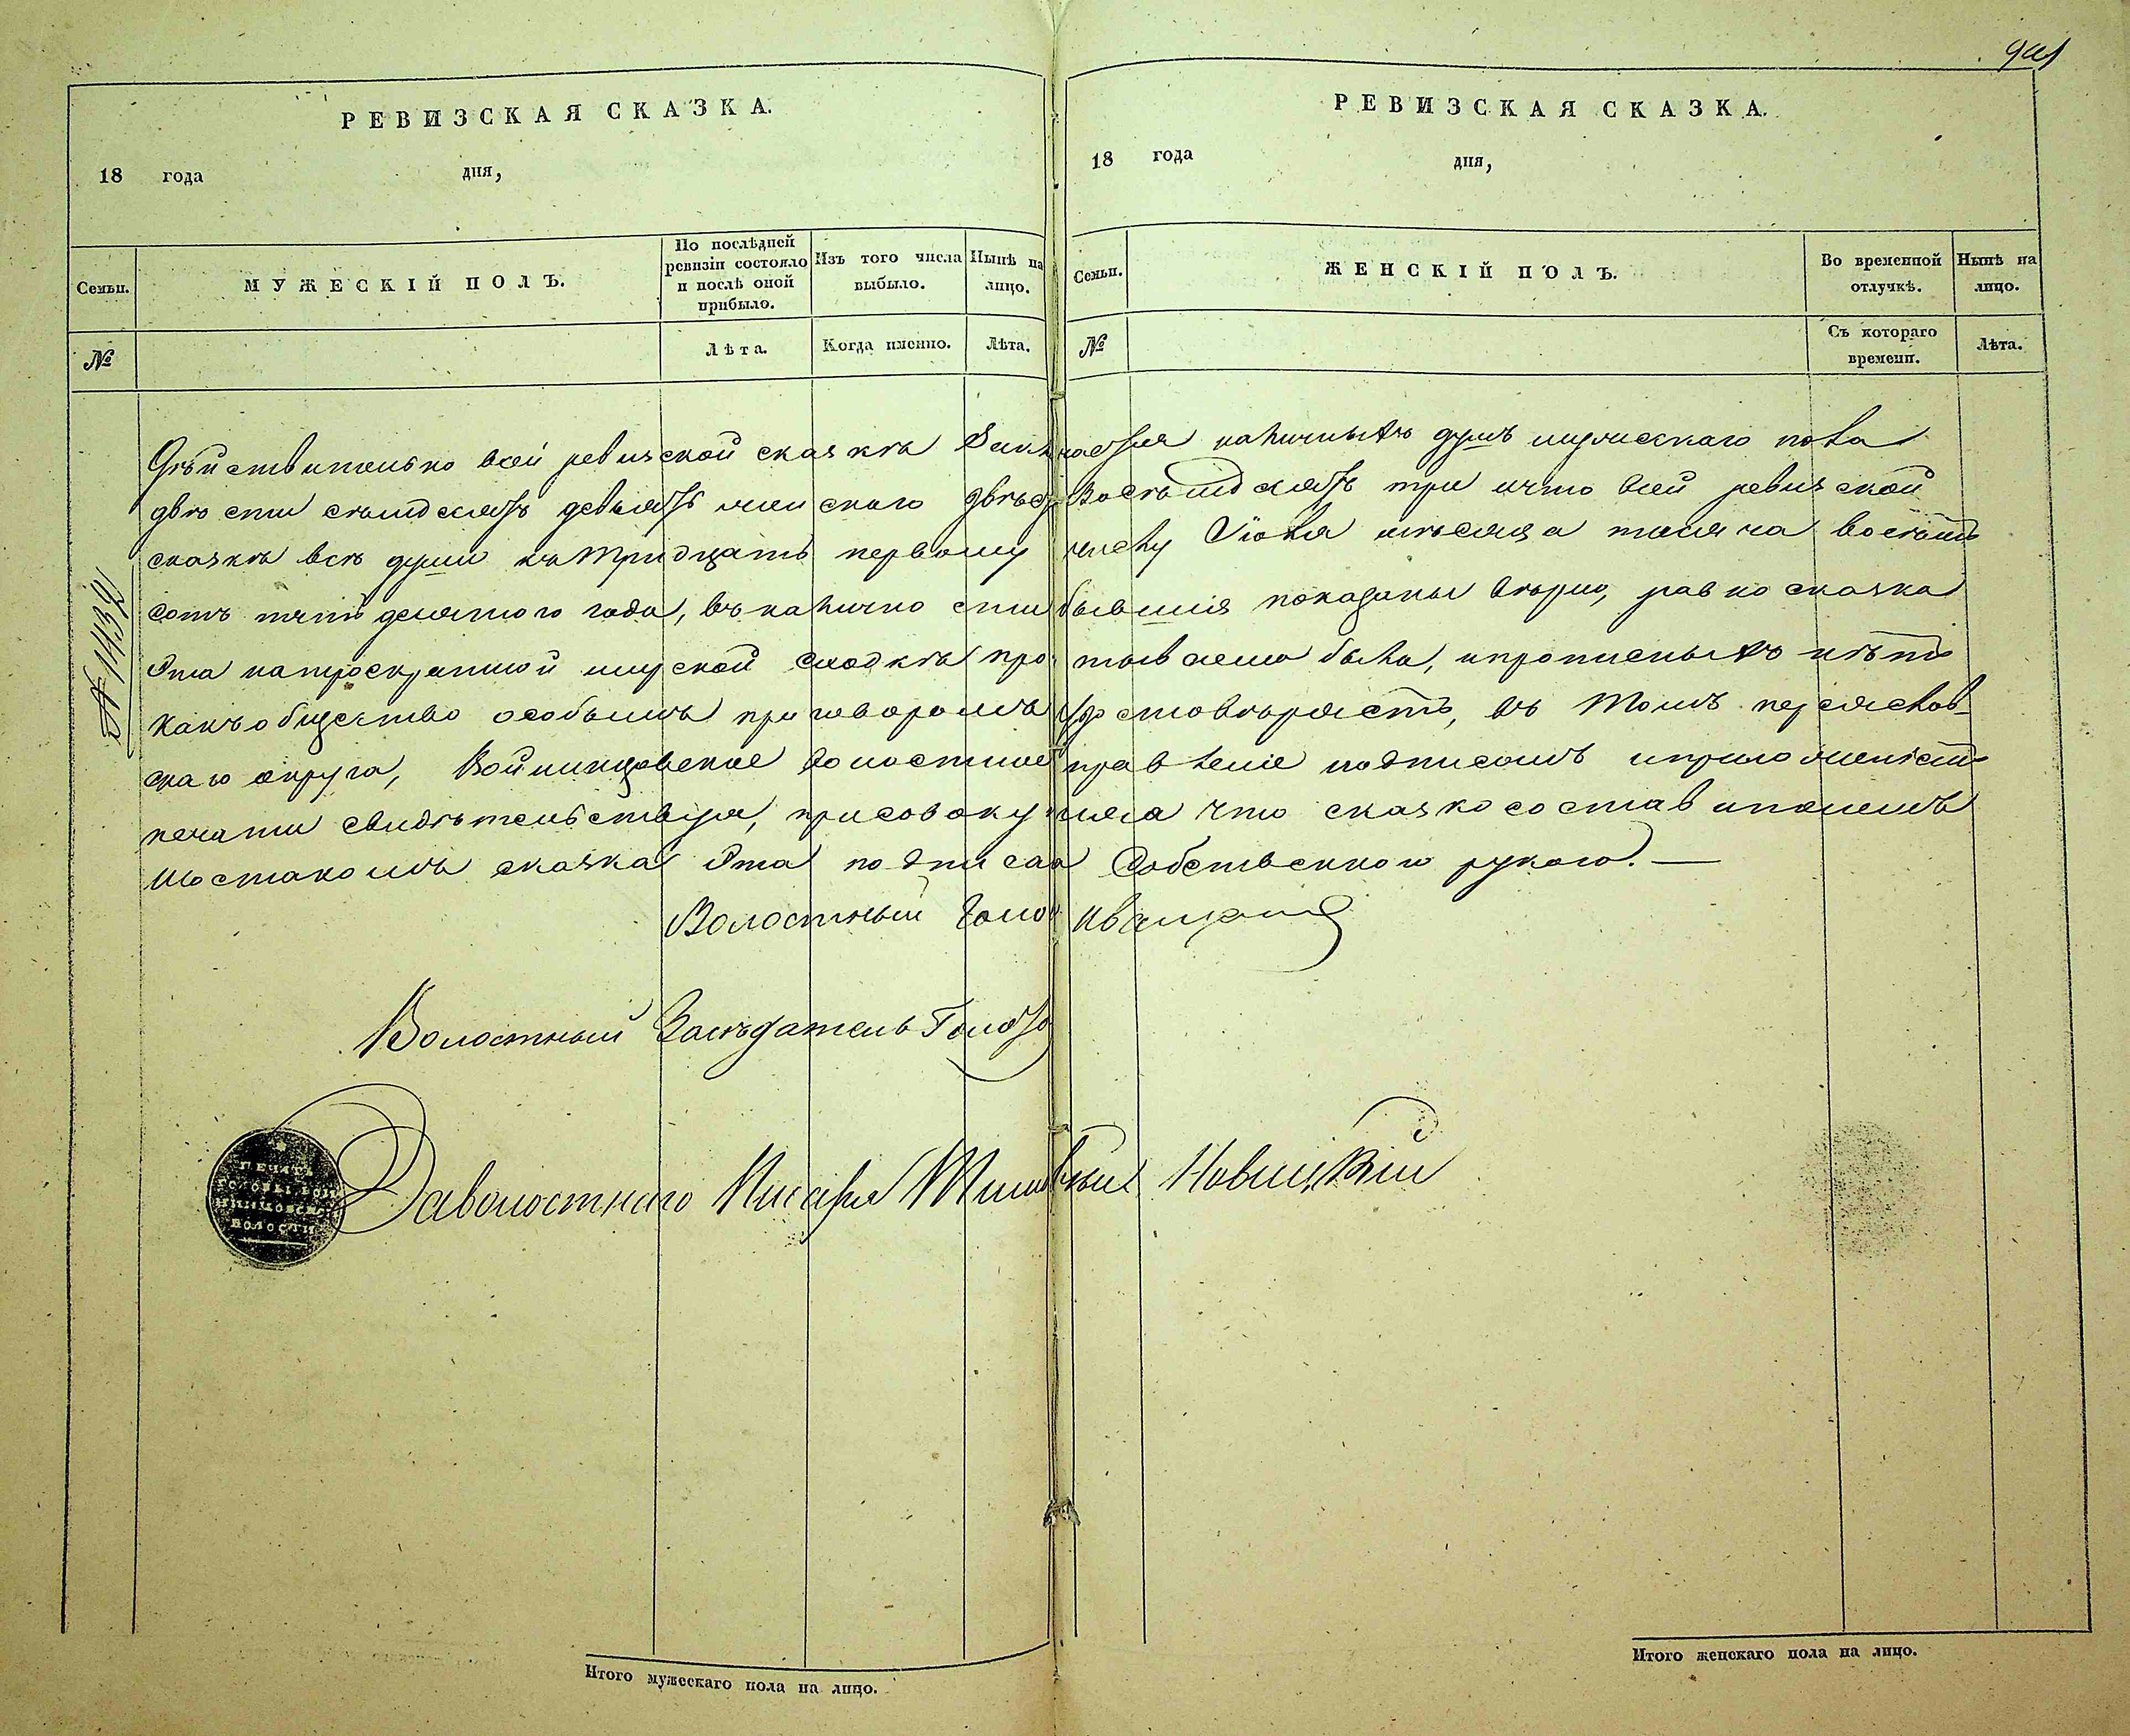 941
РЕВИЗСКАЯ СКАЗКА.
18 года дня,
Семьи. МУЖЕСКІЙ ПОЛЪ. По послѣдней ревизіи состояло и послѣ оной прибыло. Изъ того числа выбыло. Нынѣ на лицо.
№ Лѣта. Когда именно. Лѣта.
РЕВИЗСКАЯ СКАЗКА.
18 года дня,
Семьи. ЖЕНСКІЙ ПОЛЪ. Во временной отлучкѣ. Нынѣ на лицо.
№ Съ котораго времени. Лѣта.
№ 11432
Дѣйствительно всей ревизской сказкѣ наличныхъ душъ мужескаго пола
двѣсти семьдесятъ девять женскаго двѣсти восемьдесятъ три ичто всей ревизской
сказкѣ всѣ души къ тридцать первому числу Іюля мѣсяца тысяча восемь
сотъ пятьдесятого года, въ наличности бывшія показаны вѣрно, равно сказка
эта на мірской сходкѣ прочитываема была, ипрописныхъ нѣтъ
какъ общество особымъ приговоромъ удостовѣряетъ, въ томъ переяслов-
скаго округа, Войниховское волостное правленіе подписомъ иприложеніемъ
печати свидѣтельствуя, присовокупляя что сказкосоставителемъ
Шостакомъ сказка эта подписана Собственною рукою. —
Волостный Голова Иващенко
Волостный Засѣдатель
За волостнаго Писаря Новицкій
ПЕЧАТЬ
ВОЛОСТИ
Итого мужескаго пола на лицо.
Итого женскаго пола на лицо.